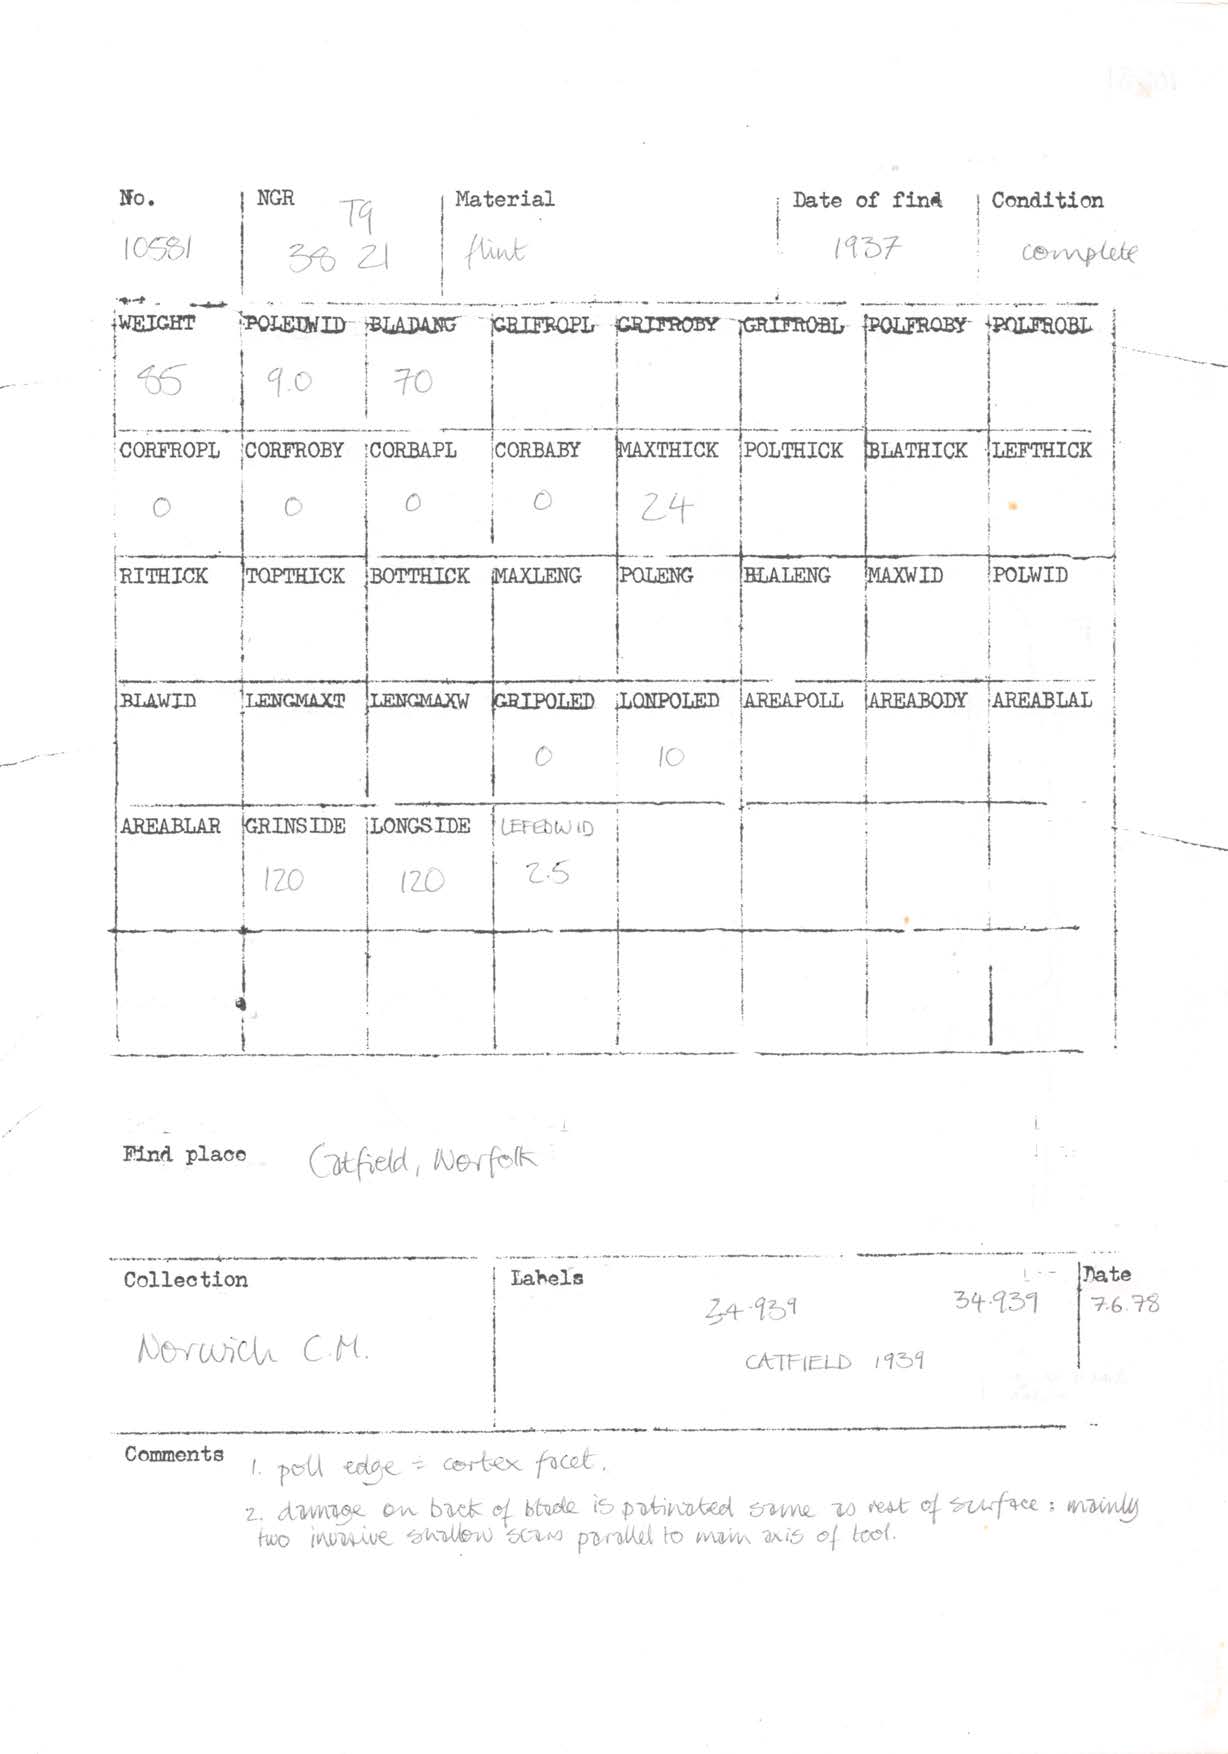 No. NGR Material Date of find Condition
TG
10581 38 21 flint 1937 complete
WEIGHT POLEDWID BLADANG GRIFROPL GRIFROBY GRIFROBL POLFROBY POLFROBL
85 9.0 70
CORFROPL CORFROBY CORBAPL CORBABY MAXTHICK POLTHICK BLATHICK LEFTHICK
0 0 0 0 24
RITHICK TOPTHICK BOTTHICK MAXLENG POLENG BLALENG MAXWID POLWID
BLAWID LENGMAXT LENGMAXW GRIPOLED LONPOLED AREAPOLL AREABODY AREABLAL
0 10
AREABLAR GRINSIDE LONGSIDE LEFEDWID
120 120 2.5
Find place Catfield, Norfolk
Collection Labels Date
34.939 34.939 7.6.78
Norwich C.M. CATFIELD 1939
Comments 1. poll edge = cortex facet.
2. damage on back of blade is patinated same as rest of surface : mainly
two invasive shallow scars parallel to main axis of tool.